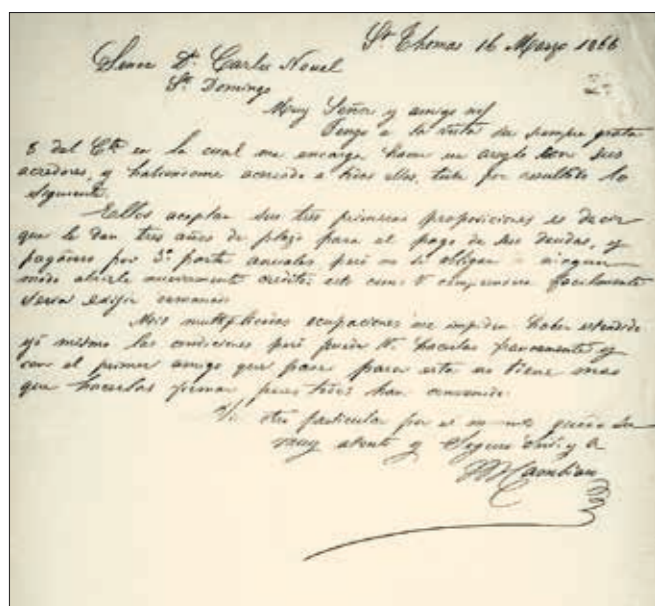 St Thomas 16 Marzo 1866
Señor Dn Carlos Nouel
Sto Domingo
Muy Señor y amigo mío
Tengo a la vista su siempre grata
8 del Cte en la cual me encarga hacer un areglo con sus
acredores, y habiendome acercado a todos ellos, tube por resultado lo
siguiente.
Ellos aceptan sus tres primeras proposiciones es decir
que le dan tres años de plazo para el pago de sus deudas, y
pagados por 3a parte anuales pero no se obligan a ningun
modo abrirle nuevamente credito: esto como V comprendera facilmente
seria exijir demasiado
Mis multiplicadas ocupaciones me impiden haber estendido
yó mismo las condiciones peró puede V. hacerlas y
con el primer amigo que pase para esta no tiene mas
que hacerlas firmar pues todos han convenido.
Sin otro particular por el momto quedo su
muy atento y Seguro Servr y A